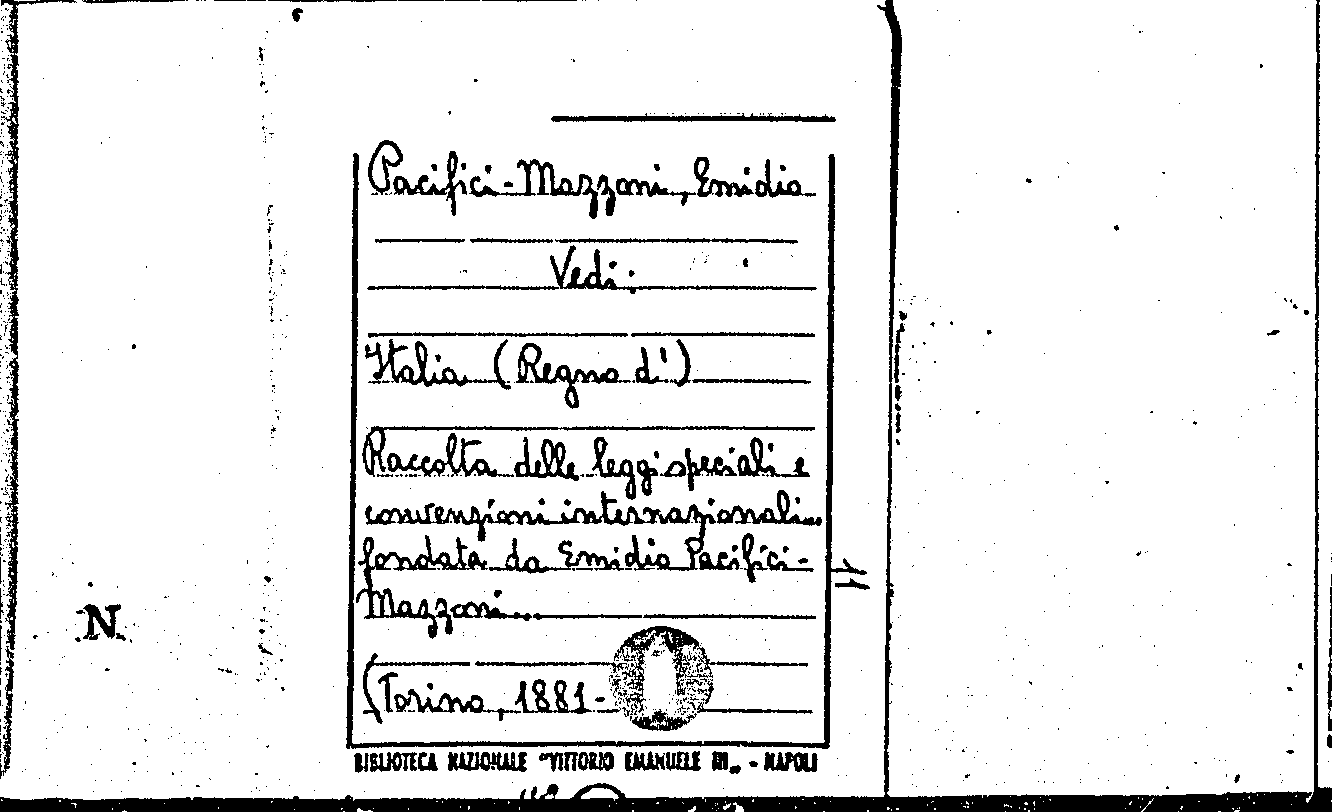 Pacifici-Mazzoni, Emidio
Vedi:
Italia (Regno d')
Raccolta delle leggi speciali e
convenzioni internazionali...
fondata da Emidio Pacifici-
Mazzoni...
(Torino, 1881-
BIBLIOTECA NAZIONALE "VITTORIO EMANUELE III„ - NAPOLI
N.
11